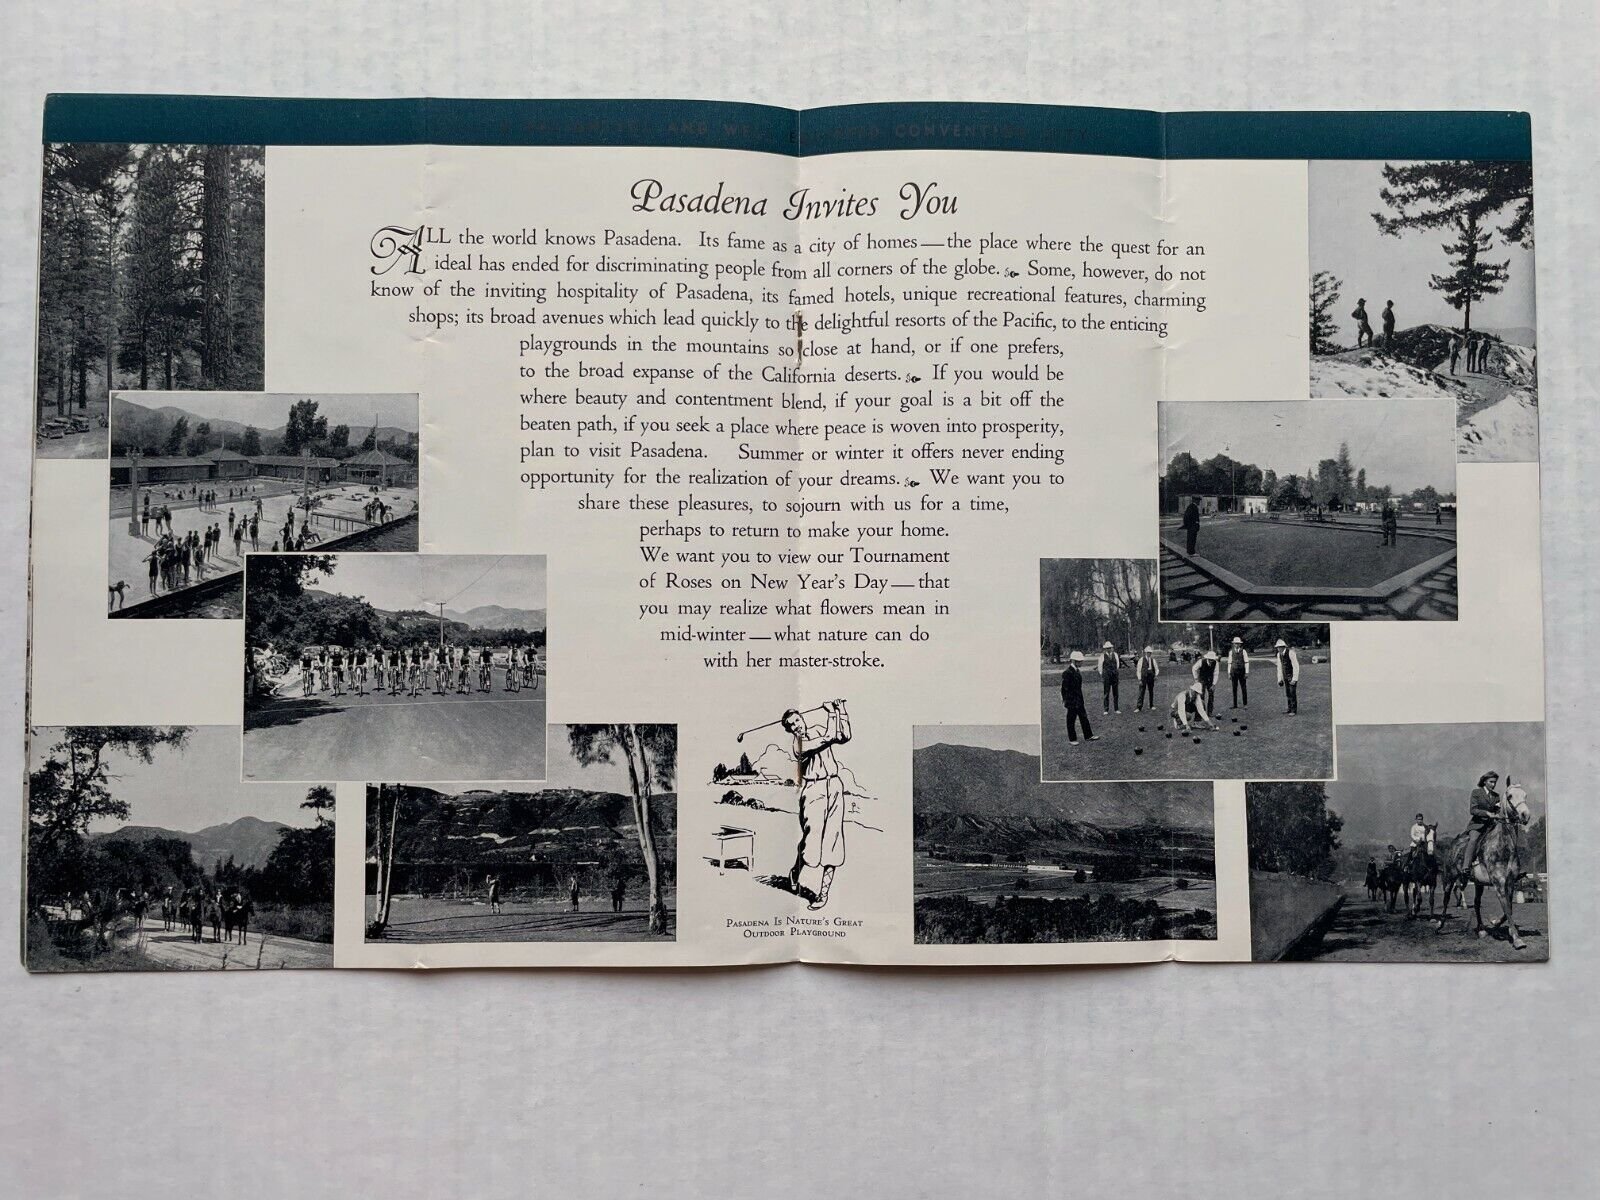 AND WELL EQUIPPED CONVENTION CITY
Pasadena Invites You
ALL the world knows Pasadena. Its fame as a city of homes—the place where the quest for an
ideal has ended for discriminating people from all corners of the globe. Some, however, do not
know of the inviting hospitality of Pasadena, its famed hotels, unique recreational features, charming
shops; its broad avenues which lead quickly to the delightful resorts of the Pacific, to the enticing
playgrounds in the mountains so close at hand, or if one prefers,
to the broad expanse of the California deserts. If you would be
where beauty and contentment blend, if your goal is a bit off the
beaten path, if you seek a place where peace is woven into prosperity,
plan to visit Pasadena. Summer or winter it offers never ending
opportunity for the realization of your dreams. We want you to
share these pleasures, to sojourn with us for a time,
perhaps to return to make your home.
We want you to view our Tournament
of Roses on New Year's Day—that
you may realize what flowers mean in
mid-winter—what nature can do
with her master-stroke.
Pasadena Is Nature's Great
Outdoor Playground